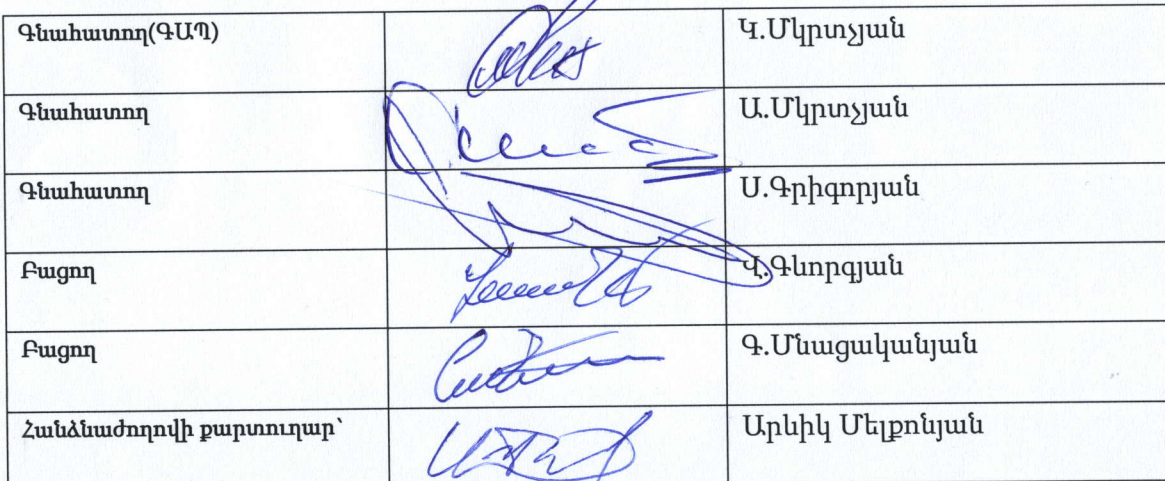 Գնահատող(ԳԱՊ) Կ.Մկրտչյան
Գնահատող Ա.Մկրտչյան
Գնահատող Ս.Գրիգորյան
Բացող Վ.Գևորգյան
Բացող Գ.Մնացականյան
Հանձնաժողովի քարտուղար՝ Արևիկ Մելքոնյան